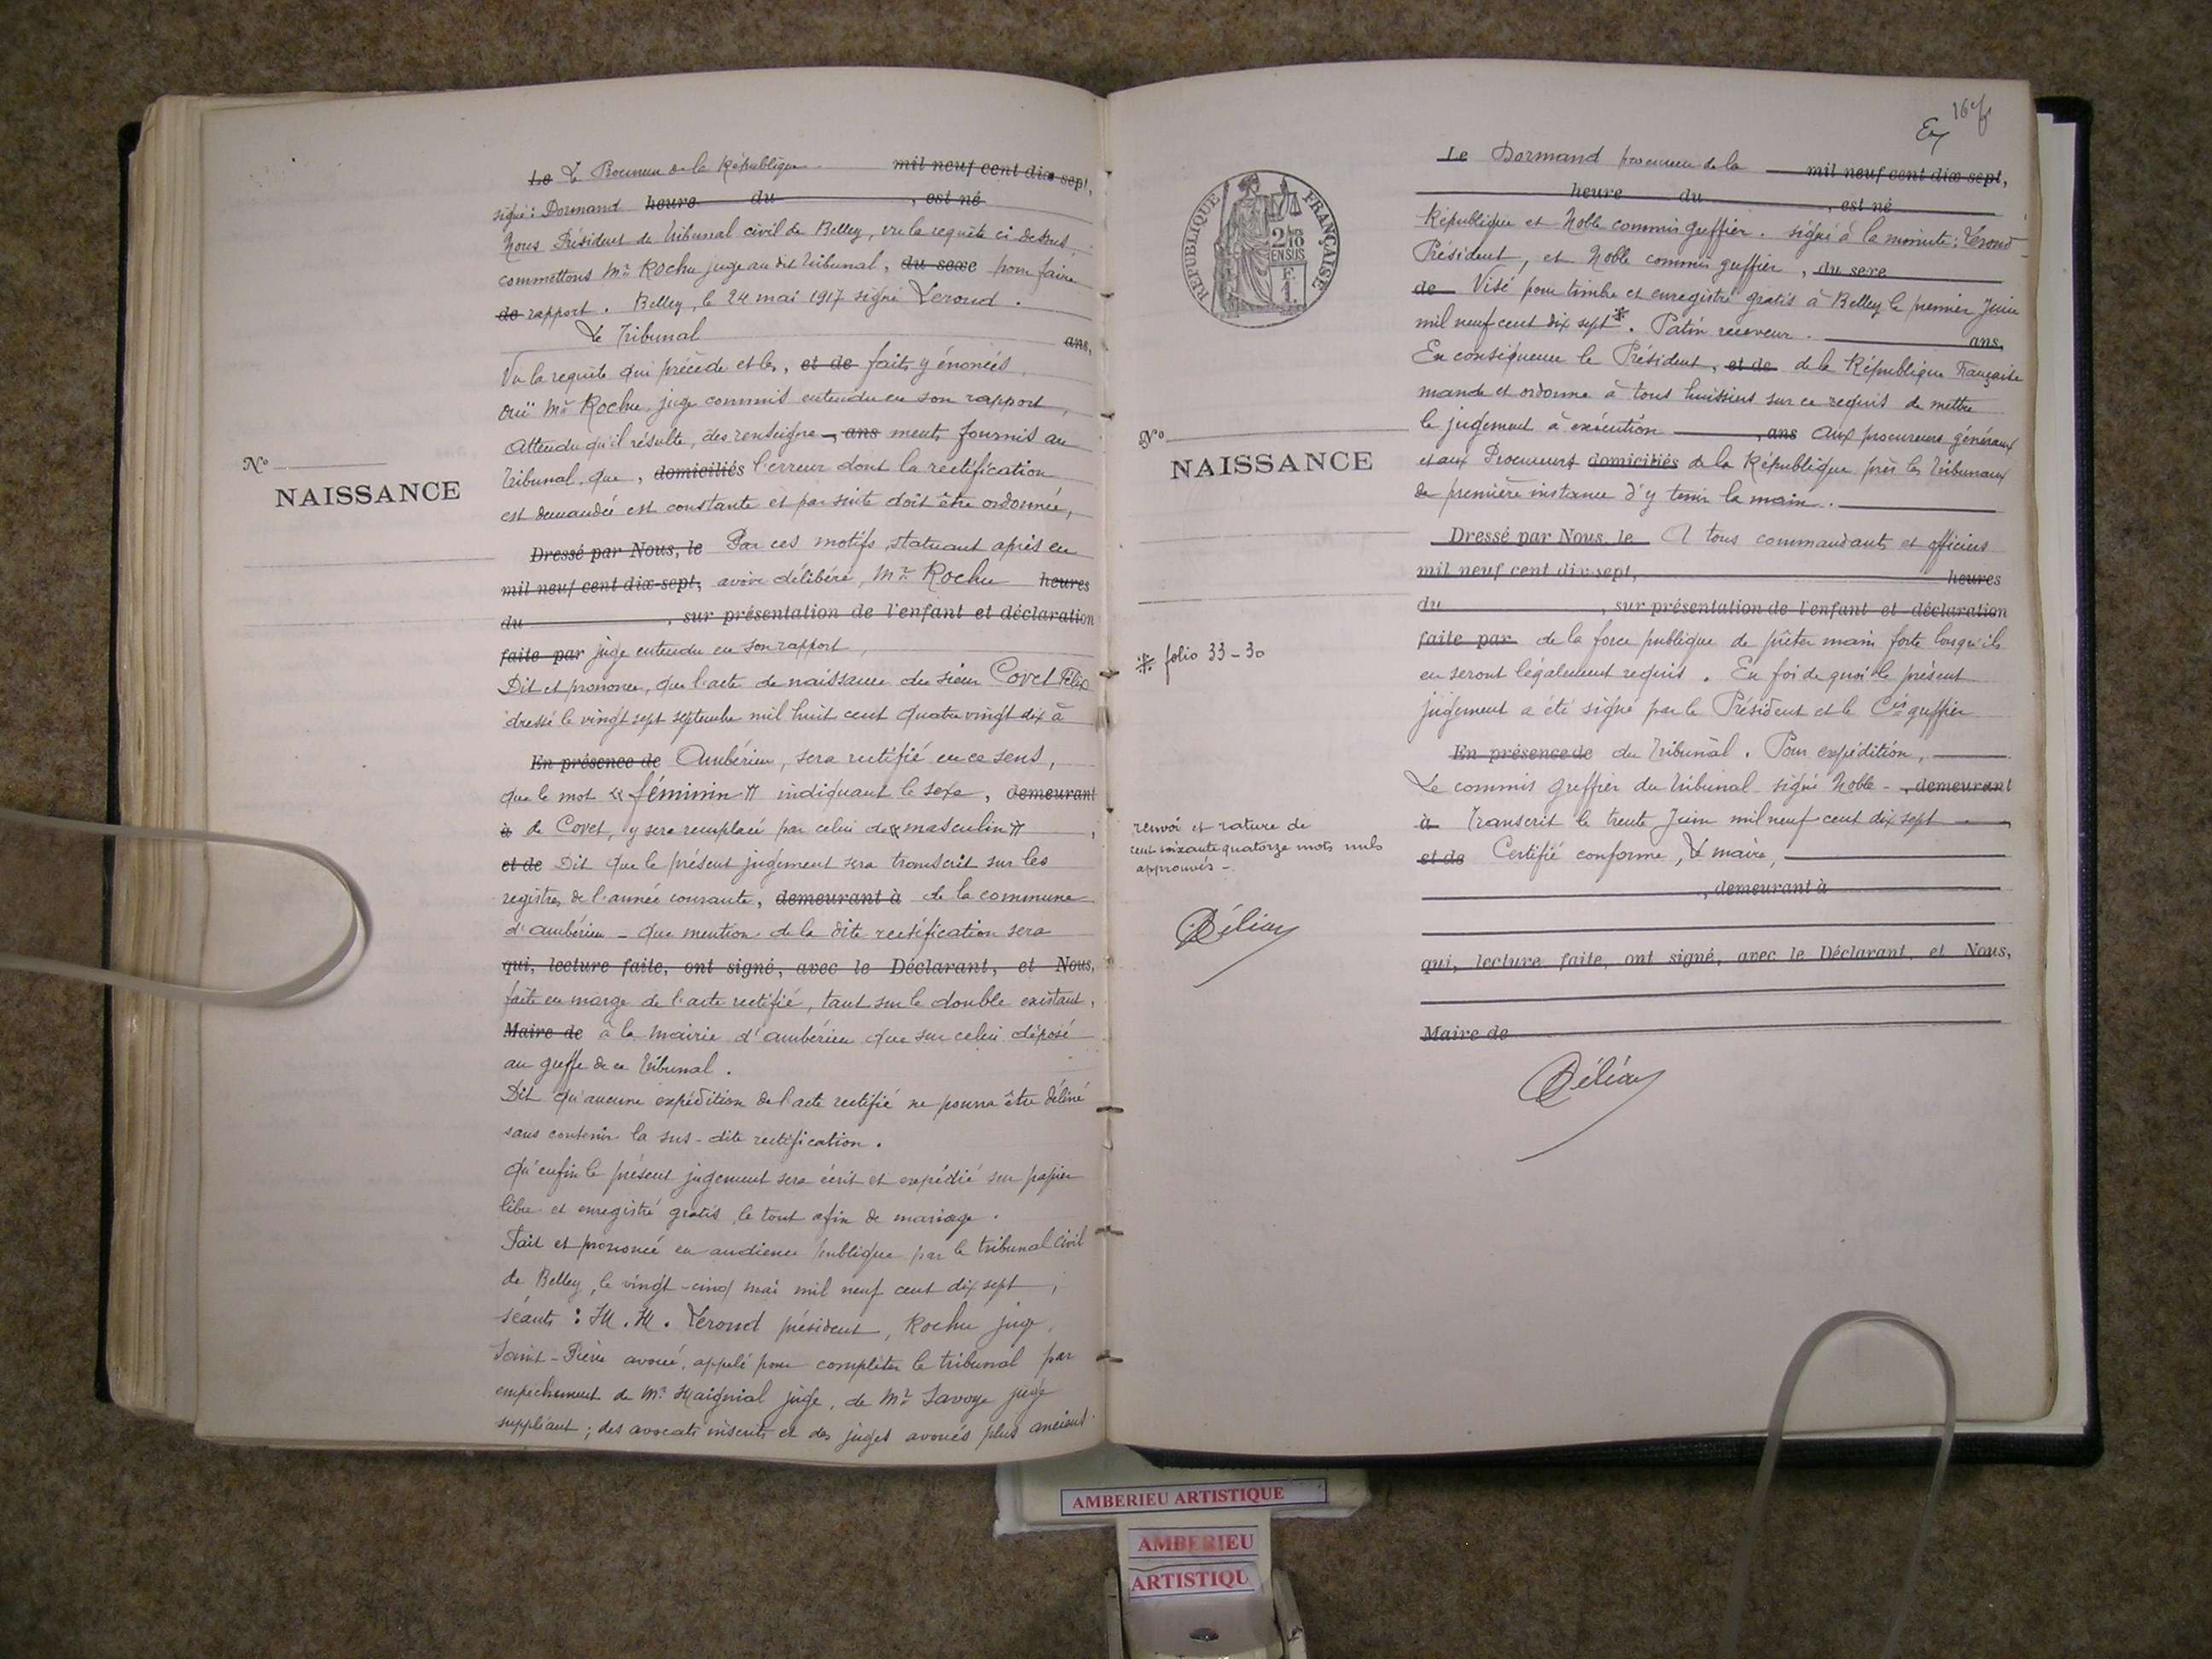 Le Le Procureur de la République mil neuf cent dix sept,
signé : Dormand heure du , est né
Nous Président du Tribunal civil de Belley, vu la requête ci dessus
commettons Mr Rochu juge au dit Tribunal, du sexe pour faire
de rapport. Belley, le 24 mai 1917 signé Verond.
Le Tribunal ans,
Vu la requête qui précède et les, et de faits y énoncés,
ouï Mr Rochu, juge commis entendu en son rapport,
Attendu qu'il résulte, des renseigne-, ans ments fournis au
Tribunal, que, domiciliés l'erreur dont la rectification
est demandée est constante et par suite doit être ordonnée,
N°
NAISSANCE
Dressé par Nous, le Par ces motifs, statuant après en
mil neuf cent dix-sept, avoir délibéré, Mr Rochu heures
du , sur présentation de l'enfant et déclaration
faite par juge entendu en son rapport,
Dit et prononce, que l'acte de naissance du sieur Covet Félix
dressé le vingt sept septembre mil huit cent quatre vingt dix à
En présence de Ambérieu, sera rectifié en ce sens,
que le mot « féminin » indiquant le sexe, demeurant
à de Covet, y sera remplacé par celui de « masculin » ,
et de Dit que le présent jugement sera transcrit sur les
registres de l'année courante, demeurant à de la commune
d'ambérieu - que mention de la dite rectification sera
qui, lecture faite, ont signé, avec le Déclarant, et Nous,
faite en marge de l'acte rectifié, tant sur le double existant,
Maire de à la mairie d'ambérieu que sur celui déposé
au greffe de ce Tribunal.
Dit qu'aucune expédition de l'acte rectifié ne pourra être délivré
sans contenir la sus-dite rectification.
Qu'enfin le présent jugement sera écrit et expédié sur papier
libre et enregistré gratis, le tout afin de mariage.
Fait et prononcé en audience publique par le tribunal civil
de Belley, le vingt-cinq mai mil neuf cent dix sept,
séants : M. M. Verond président, Rochu juge,
Saint-Pierre avoué, appelé pour compléter le tribunal par
empêchement de Mr Maignial juge, de Mr Savoye juge
suppléant ; des avocats inscrits et des juges avoués plus anciens
167
RÉPUBLIQUE FRANÇAISE
2/10
EN SUS
F.
1.
Le Dormand procureur de la mil neuf cent dix sept,
heure du , est né
République et Noble commis greffier. signé à la minute : Verond
Président, et Noble commis greffier, du sexe
de Visé pour timbre et enregistré gratis à Belley le premier Juin
mil neuf cent dix sept *. Patin receveur. ans,
En conséquence le Président, et de de la République Française
mande et ordonne à tous huissiers sur ce requis de mettre
le jugement à exécution , ans aux procureurs généraux
et aux Procureurs domiciliés de la République près les Tribunaux
de première instance d'y tenir la main.
N°
NAISSANCE
Dressé par Nous, le A tous commandants et officiers
mil neuf cent dix sept, heures
du , sur présentation de l'enfant et déclaration
faite par de la force publique de prêter main forte lorsqu'ils
en seront légalement requis. En foi de quoi le présent
jugement a été signé par le Président et le Cis greffier
En présence de du Tribunal. Pour expédition,
Le commis greffier du Tribunal signé Noble - , demeurant
à Transcrit le trente Juin mil neuf cent dix sept
et de Certifié conforme, Le maire,
, demeurant à
qui, lecture faite, ont signé, avec le Déclarant, et Nous,
Maire de
* folio 33-30
renvoi et rature de
cent soixante quatorze mots nuls
approuvés -
AMBERIEU ARTISTIQUE
AMBERIEU
ARTISTIQU